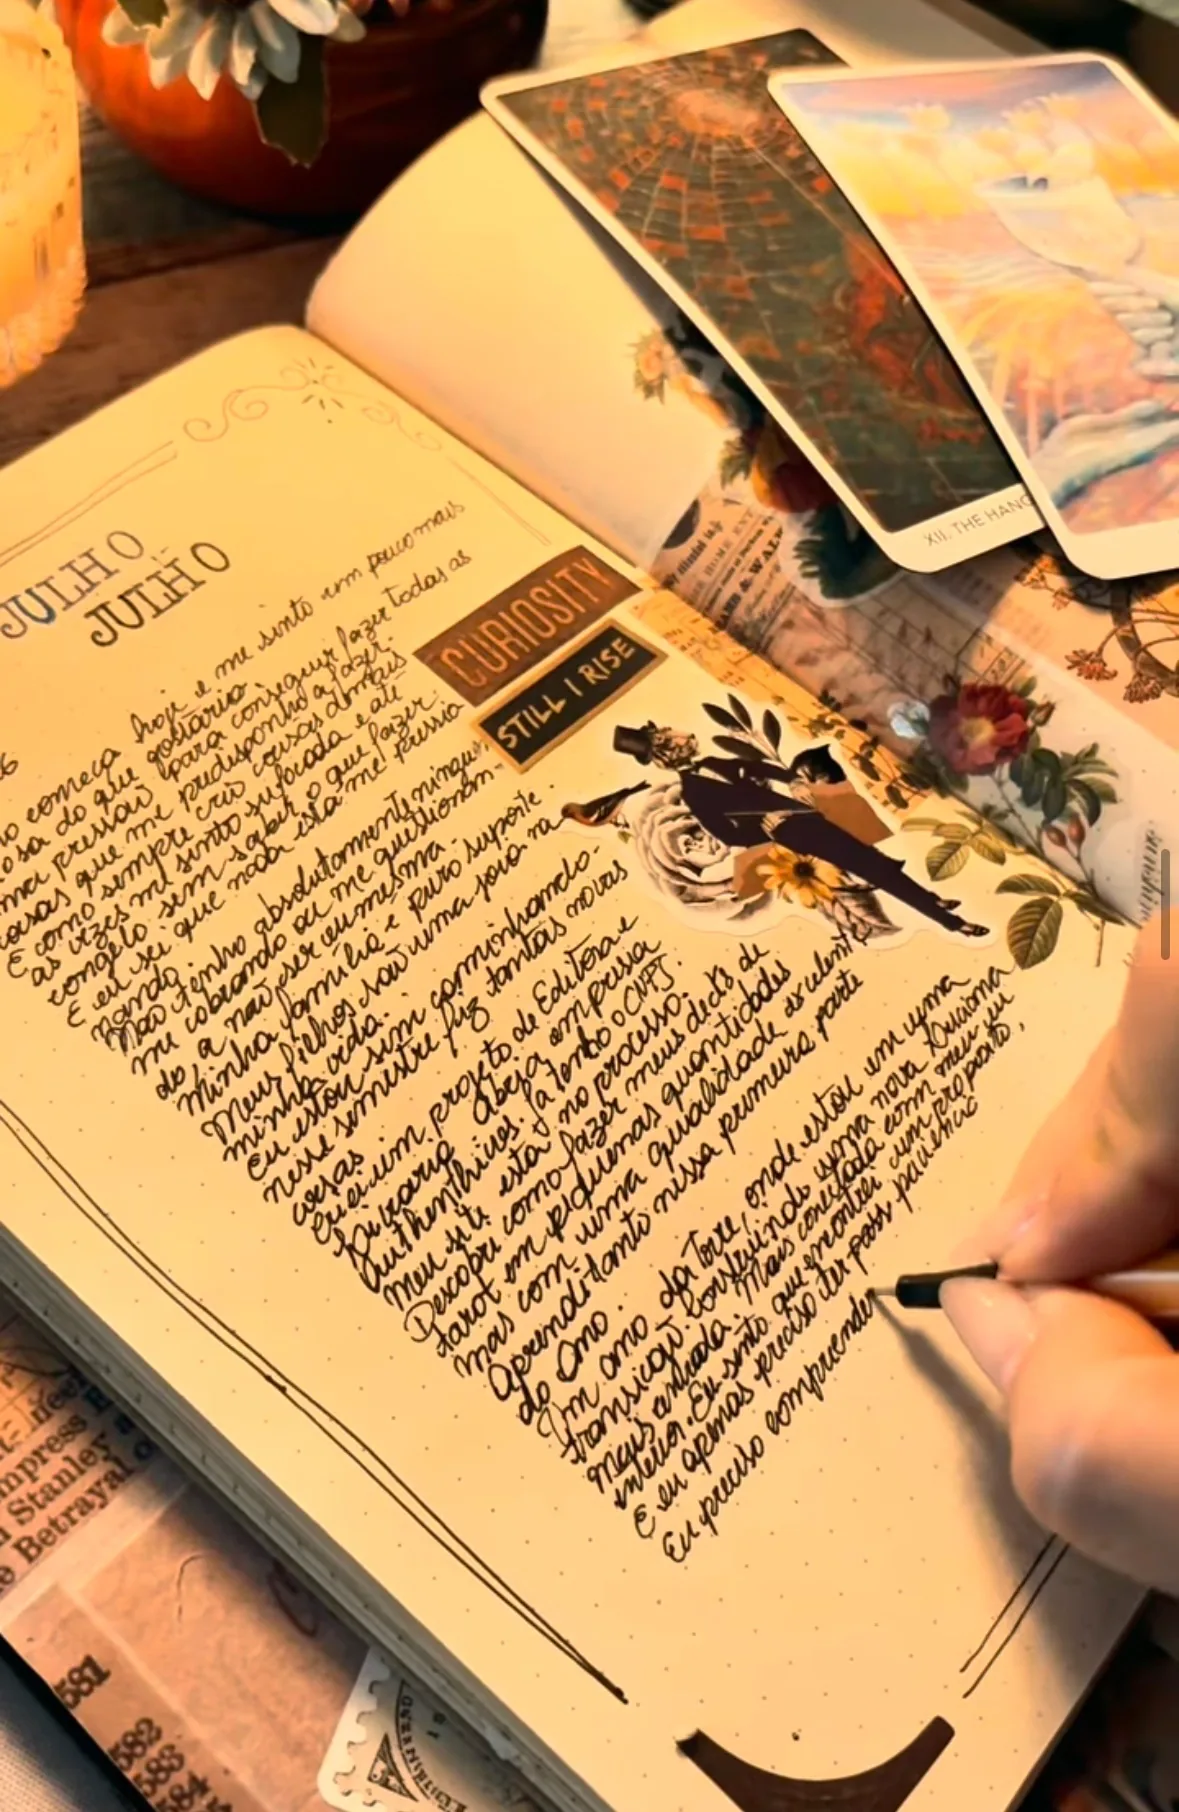 JULHO
JULHO
CURIOSITY
STILL I RISE
XII. THE HANG
começa hoje e me sinto um pouco mais
do que gostaria.
uma pressão para conseguir fazer todas as
coisas que me predisponho a fazer.
E como sempre crio coisas demais
as vezes me sinto sufocada e até
congelo sem saber o que fazer.
E eu sei que nada está me pressio
nando.
Não tenho absolutamente ninguém
me cobrando ou me questionan-
do a não ser eu mesma.
Minha família é puro suporte.
Meus filhos são uma joia na
minha vida.
Eu estou sim caminhando.
nesse semestre fiz tantas novas
coisas
Criei um projeto de Editora e
Livraria abeja empresa
Authenthicas. Já tenho o CNPJ.
Meu site está no processo.
Descobri como fazer meus decks de
tarot em pequenas quantidades
mas com uma qualidade excelente
Aprendi tanto nessa primeira parte
do Ano.
Um ano da Torre, onde estou em uma
transição construindo uma nova Luciana
mais antenada. Mais conectada com meu eu
interior. Eu sinto que encontrei um proposito.
E eu apenas preciso ter paciencia
Eu preciso compreender
mpress
Stanley
e Betrayal o
581
582
583